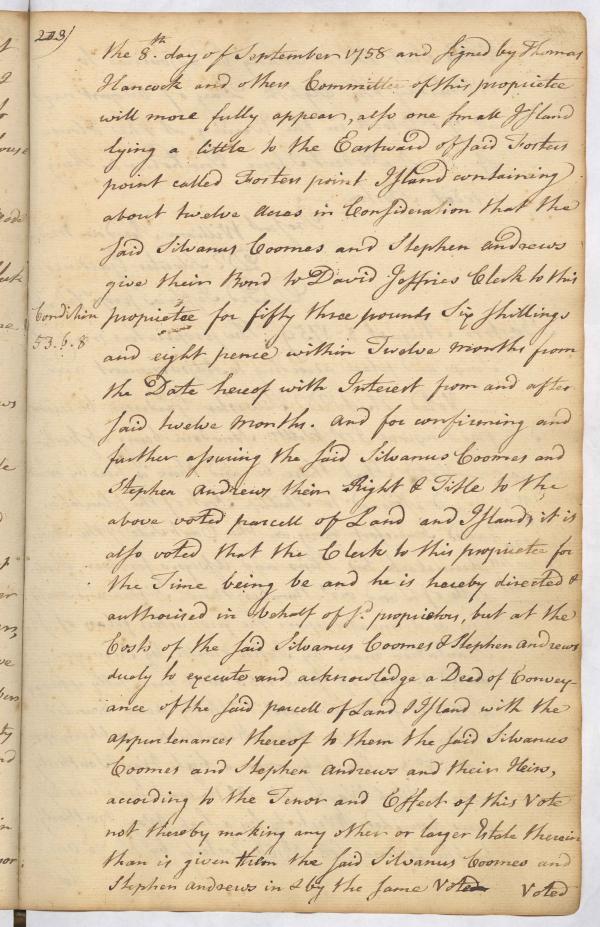 213/
the 8th. day of September 1758 and signed by Thomas
Hancock and others Committee of this proprietee
will more fully appear, also one small Island
lying a little to the Eastward of said Fosters
point called Fosters point Island containing
about twelve Acres in Consideration that the
said Silvanus Coomes and Stephen Andrews
give their Bond to David Jeffries Clerk to this
Condition
53. 6. 8
proprietee for fifty three pounds Six shillings
and eight pence within Twelve months from
the Date hereof with Interest from and after
said twelve months. And for confirming and
farther assuring the said Silvanus Coomes and
Stephen Andrews their Right & Title to the
above voted parcell of Land and Island, it is
also voted that the Clerk to this proprietee for
the Time being be and he is hereby directed &
authorised in behalf of sd. proprietors, but at the
Cost of the said Silvanus Coomes & Stephen Andrews
duely to execute and acknowledge a Deed of Convey-
ance of the said parcell of Land & Island with the
appurtenances thereof to them the said Silvanus
Coomes and Stephen Andrews and their Heirs,
according to the Tenor and Effect of this Vote
not thereby making any other or larger Estate therein
than is given them the said Silvanus Coomes and
Stephen Andrews in & by the same Voted
Voted